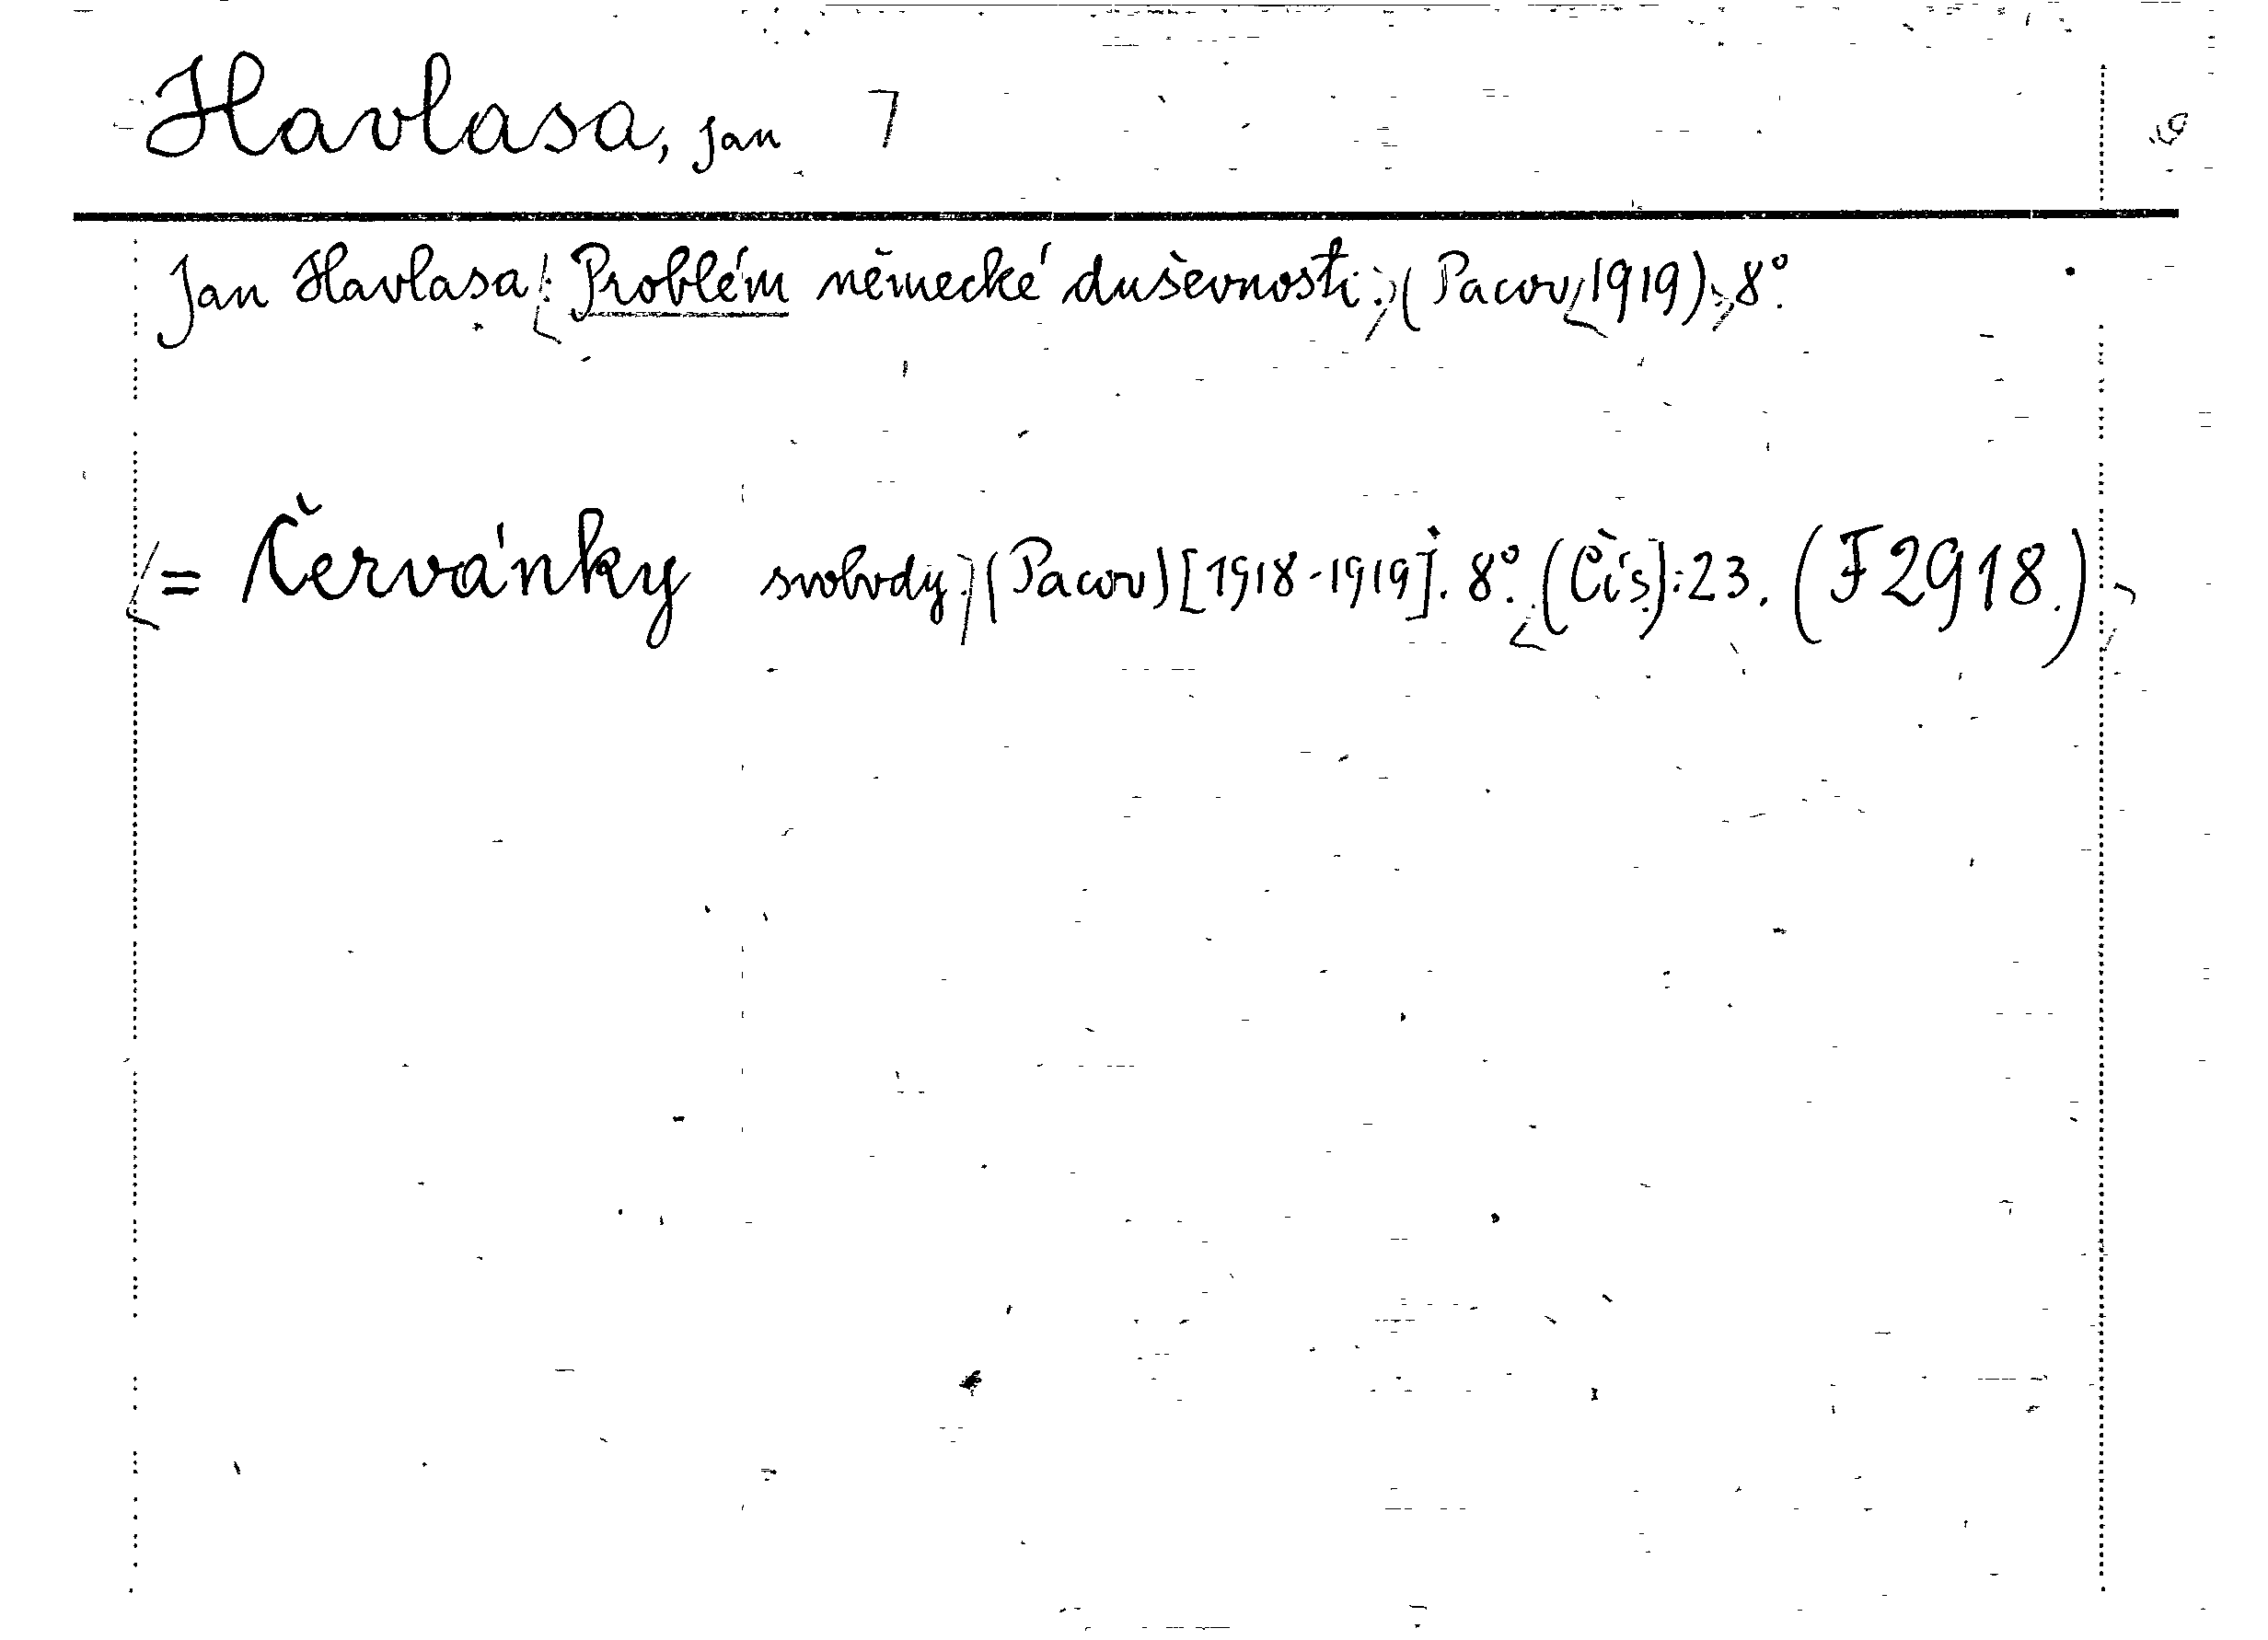 Havlasa, Jan 7
Jan Havlasa: Problém německé duševnosti. (Pacov 1919). 8°.
= Červánky svobody. (Pacov) [1918-1919]. 8°. (Čís.): 23. (F 2918.)